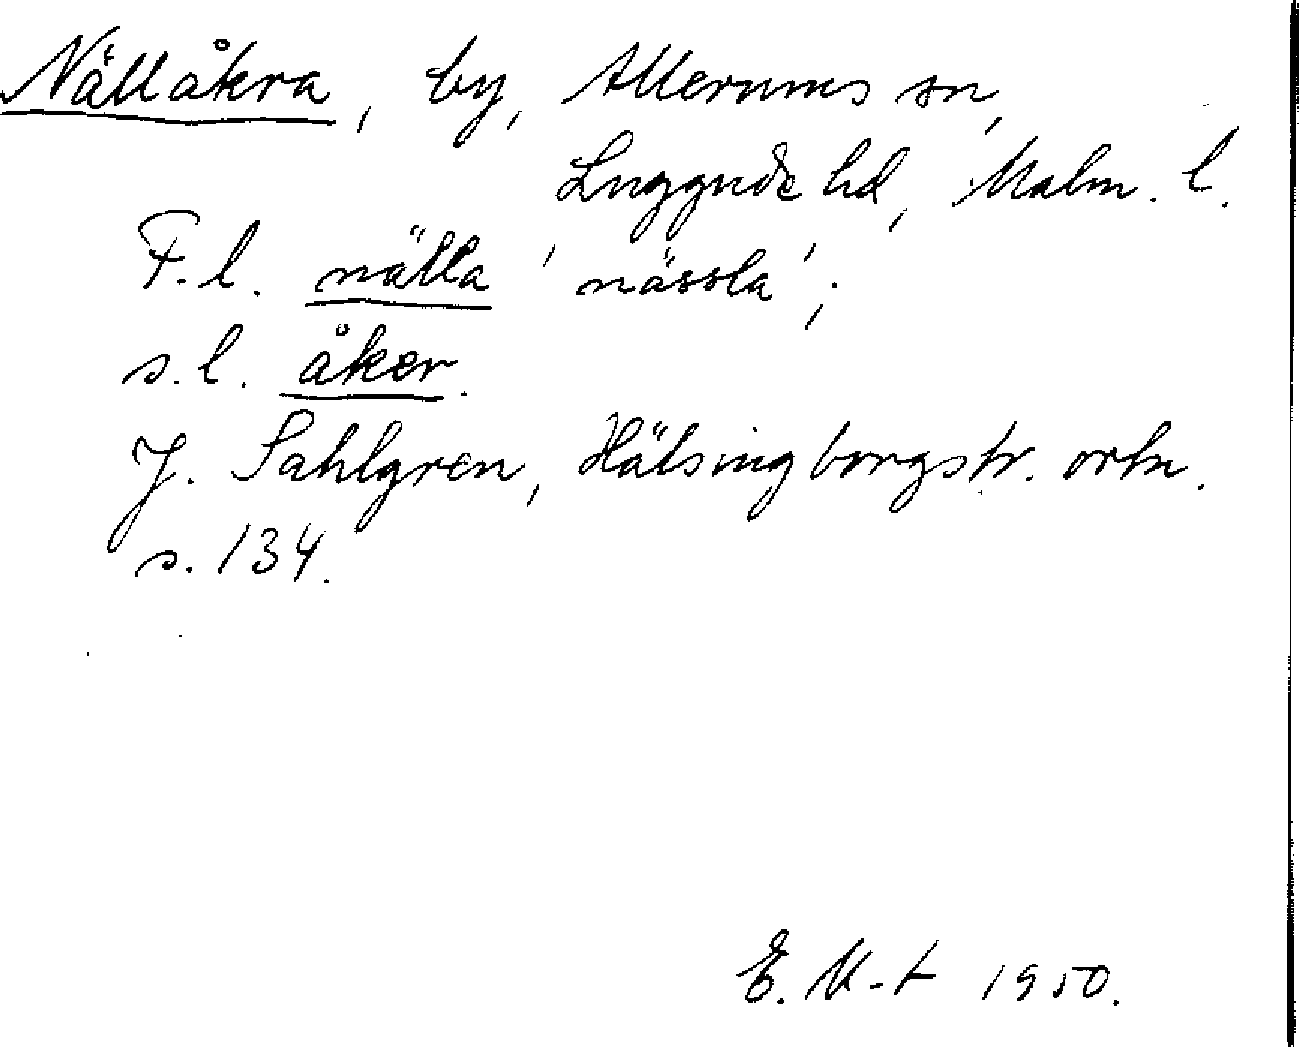 Nällåkra, by, Allerums sn,
Luggude hd, Malm. l.
F.l. nälla 'nässla';
s.l. åker.
J. Sahlgren, Hälsingborgstr. ortn.
s. 134.
E. M-t 1950.